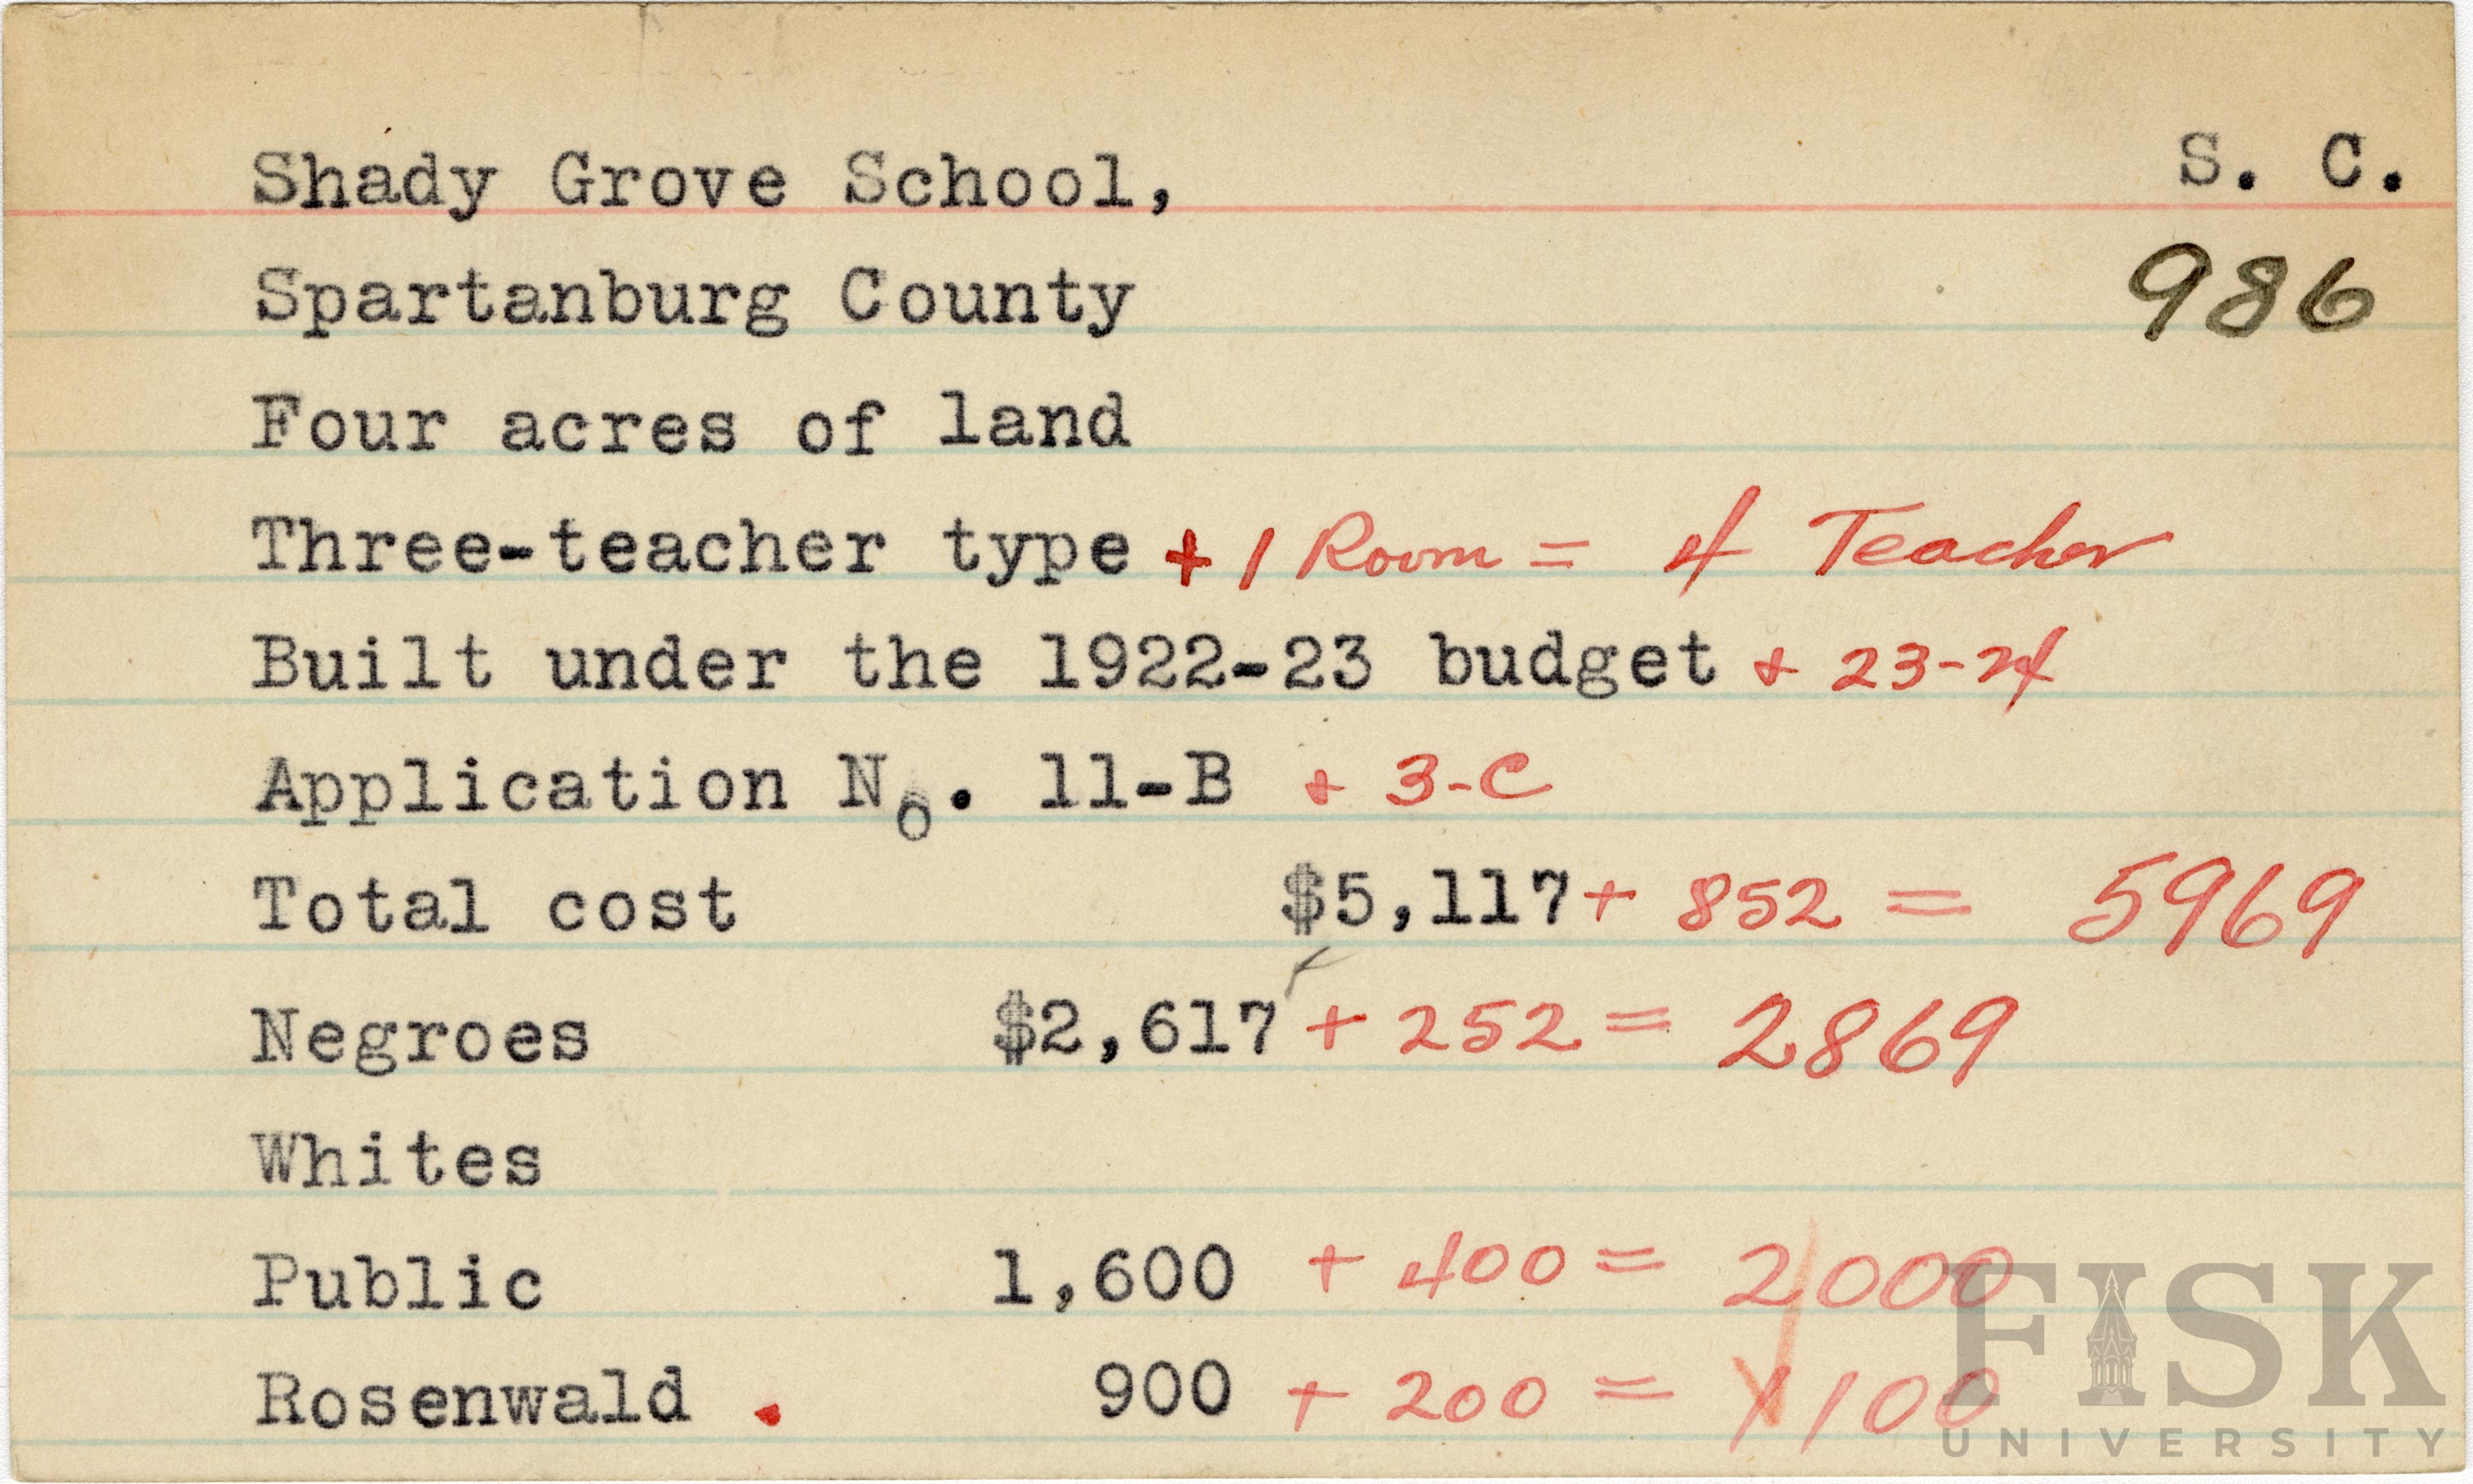 Shady Grove School, S. C.
Spartanburg County 986
Four acres of land
Three-teacher type + 1 Room = 4 Teacher
Built under the 1922-23 budget + 23-24
Application No. 11-B + 3-C
Total cost $5,117 + 852 = 5969
Negroes $2,617 + 252 = 2869
Whites
Public 1,600 + 400 = 2000
Rosenwald . 900 + 200 = 1100
FISK
UNIVERSITY